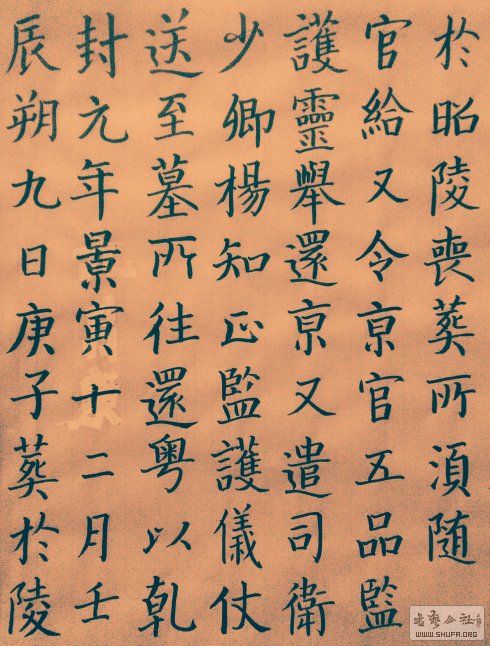 於昭陵喪葬所湏随
官給又令亰官五品監
護靈舉還亰又遣司衛
少卿楊知正監護儀仗
送至墓所往還粵以乹
封元年景寅十二月壬
辰朔九日庚子葬於陵
书艺公社
WWW.SHUFA.ORG